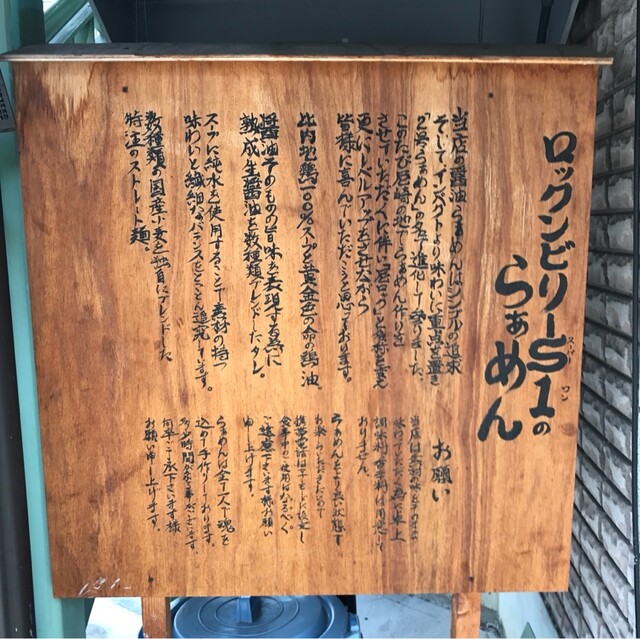 ロックンビリーS1の
スーパー
ワン
らぁめん
当店の醤油らぁめんはシンプルの追求
そしてインパクトより味わいに重点を置き
このたび尼崎の地でらぁめん作りを
させていただくに伴い「尼ロック」と
更にレベルアップをさせながら
皆様に喜んでいただこうと思っております。
比内地鶏100%スープと黄金色の命の鶏油。
醤油そのものの旨味を表現する為に
熟成生醤油を数種類ブレンドしたタレ。
スープに純水を使用することで素材の持つ
味わいと繊細なバランスをとことん追究しています。
数種類の国産小麦を独自にブレンドした
特注のストレート麺。
お願い
当店は素材の味をそのまま
味わっていただく為に卓上
調味料、香辛料は用意して
おりません。
らぁめんをより良い状態で
お楽しみいただきたいので
携帯電話はマナーモードに設定し
食事中のご使用はなるべく
ご遠慮下さいます様お願い
申し上げます。
らぁめんは全て一人で魂を
込め手作りしております。
多少お時間がかかる事がございます。
何卒ご了承下さいます様
お願い申し上げます。